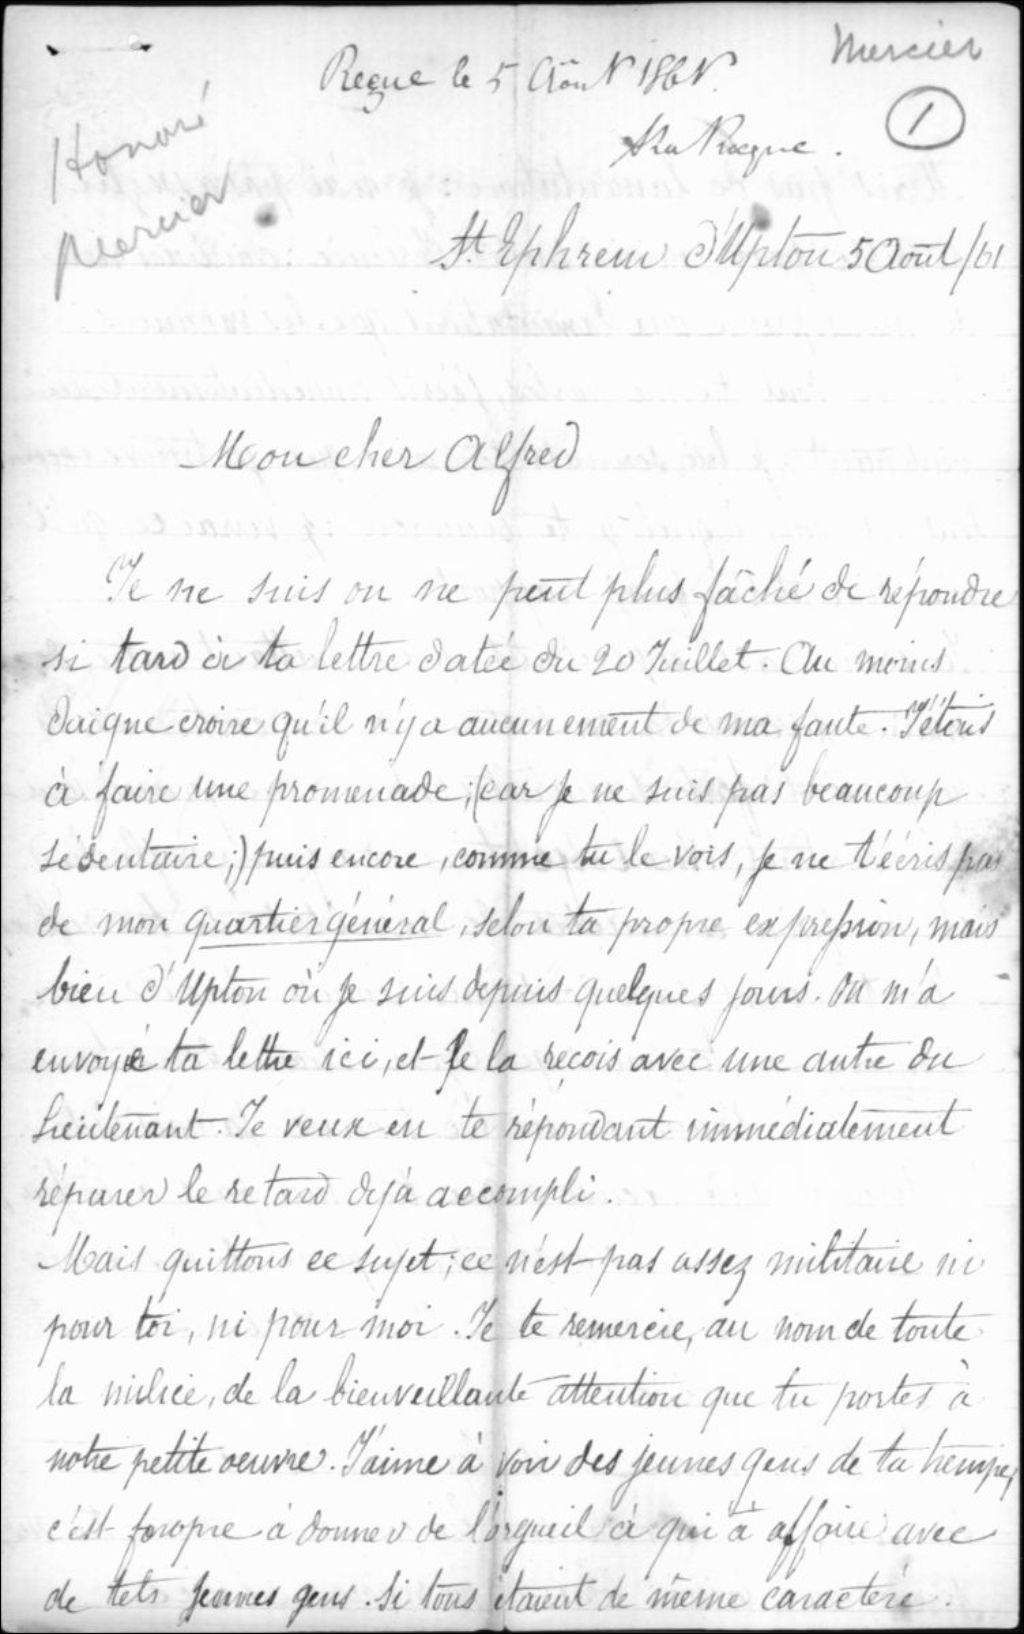 Mercier
1
Reçue le 5 Août 186
Honoré
Mercier
St. Ephrem d'Upton 5 Août /61
Mon cher Alfred
Je ne suis on ne peut plus fâché de répondre
si tard à ta lettre datée du 20 Juillet. Au moins
daigne croire qu'il n'y a aucunement de ma faute. J'étais
à faire une promenade; (car je ne suis pas beaucoup
sédentaire;) puis encore, comme tu le vois, je ne t'écris pas
de mon quartier général, selon ta propre expression, mais
bien d'Upton où je suis depuis quelques jours. On m'a
envoyé ta lettre ici, et je la reçois avec une autre du
Lieutenant. Je veux en te répondant immédiatement
réparer le retard déjà accompli.
Mais quittons ce sujet; ce n'est pas assez militaire ni
pour toi, ni pour moi. Je te remercie, au nom de toute
la milice, de la bienveillante attention que tu portes à
notre petite oeuvre. J'aime à voir des jeunes gens de ta trempe,
c'est propre à donner de l'orgueil à qui à affaire avec
de tels jeunes gens. Si tous étaient de même caractère.